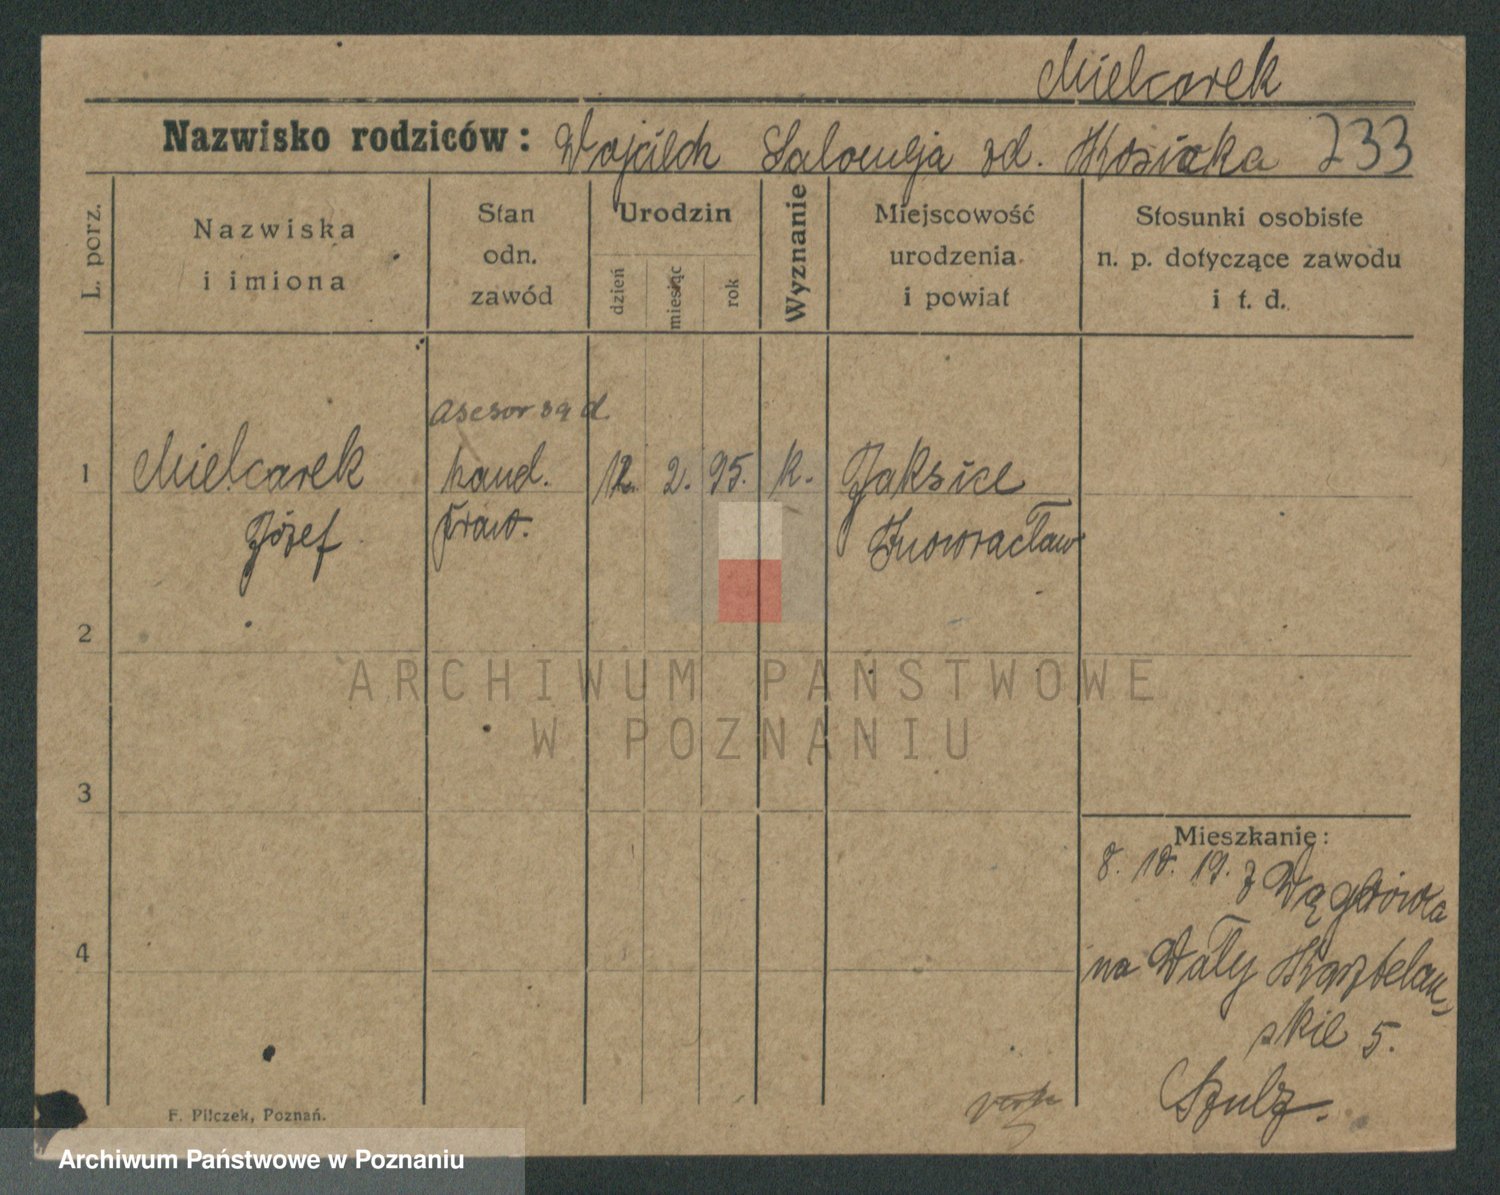 Mielcarek
Nazwisko rodziców: Wojciech Salomeja zd. Kosicka 233
L. porz.
Nazwiska
i imiona
Stan
odn.
zawód
Urodzin
dzień
miesiąc
rok
Wyznanie
Miejscowość
urodzenia
i powiat
Stosunki osobiste
n. p. dotyczące zawodu
i t. d.
asesor sąd
1 Mielcarek hand. 12. 2. 95. k. Jaksice
Józef Inowracław
2
ARCHIWUM PAŃSTWOWE
W POZNANIU
3
Mieszkanie:
8. 10. 19. z Wągrówca
4
na Wały Kasztelań
skie 5.
Szulz.
F. Pilczek, Poznań.
Archiwum Państwowe w Poznaniu